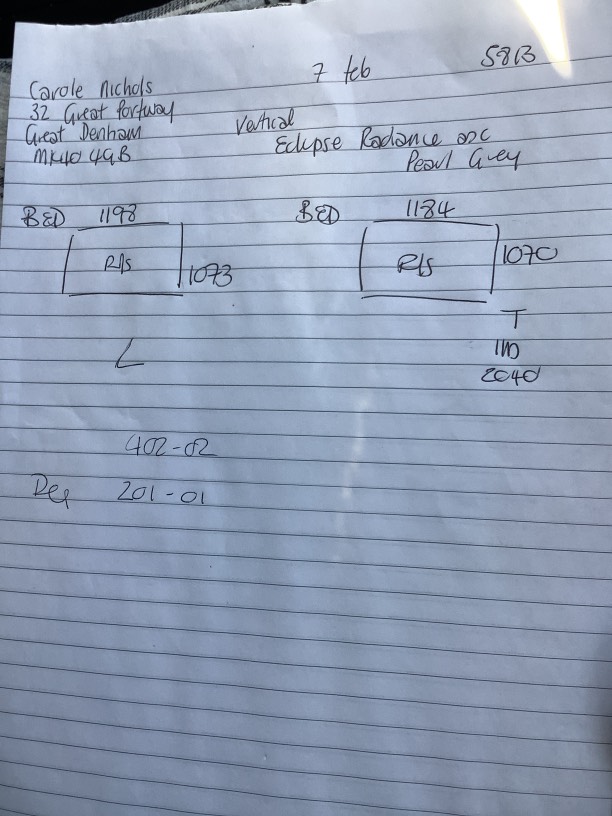 7 feb
58B
Carole Nichols
32 Great Portway
Great Denham
MK40 4GB
Vertical
Eclipse Radiance asc
Pearl Grey
BED 1198
R/s
1073
L
BED 1184
R/s
1070
T
IID
2040
402-02
Dep 201-01